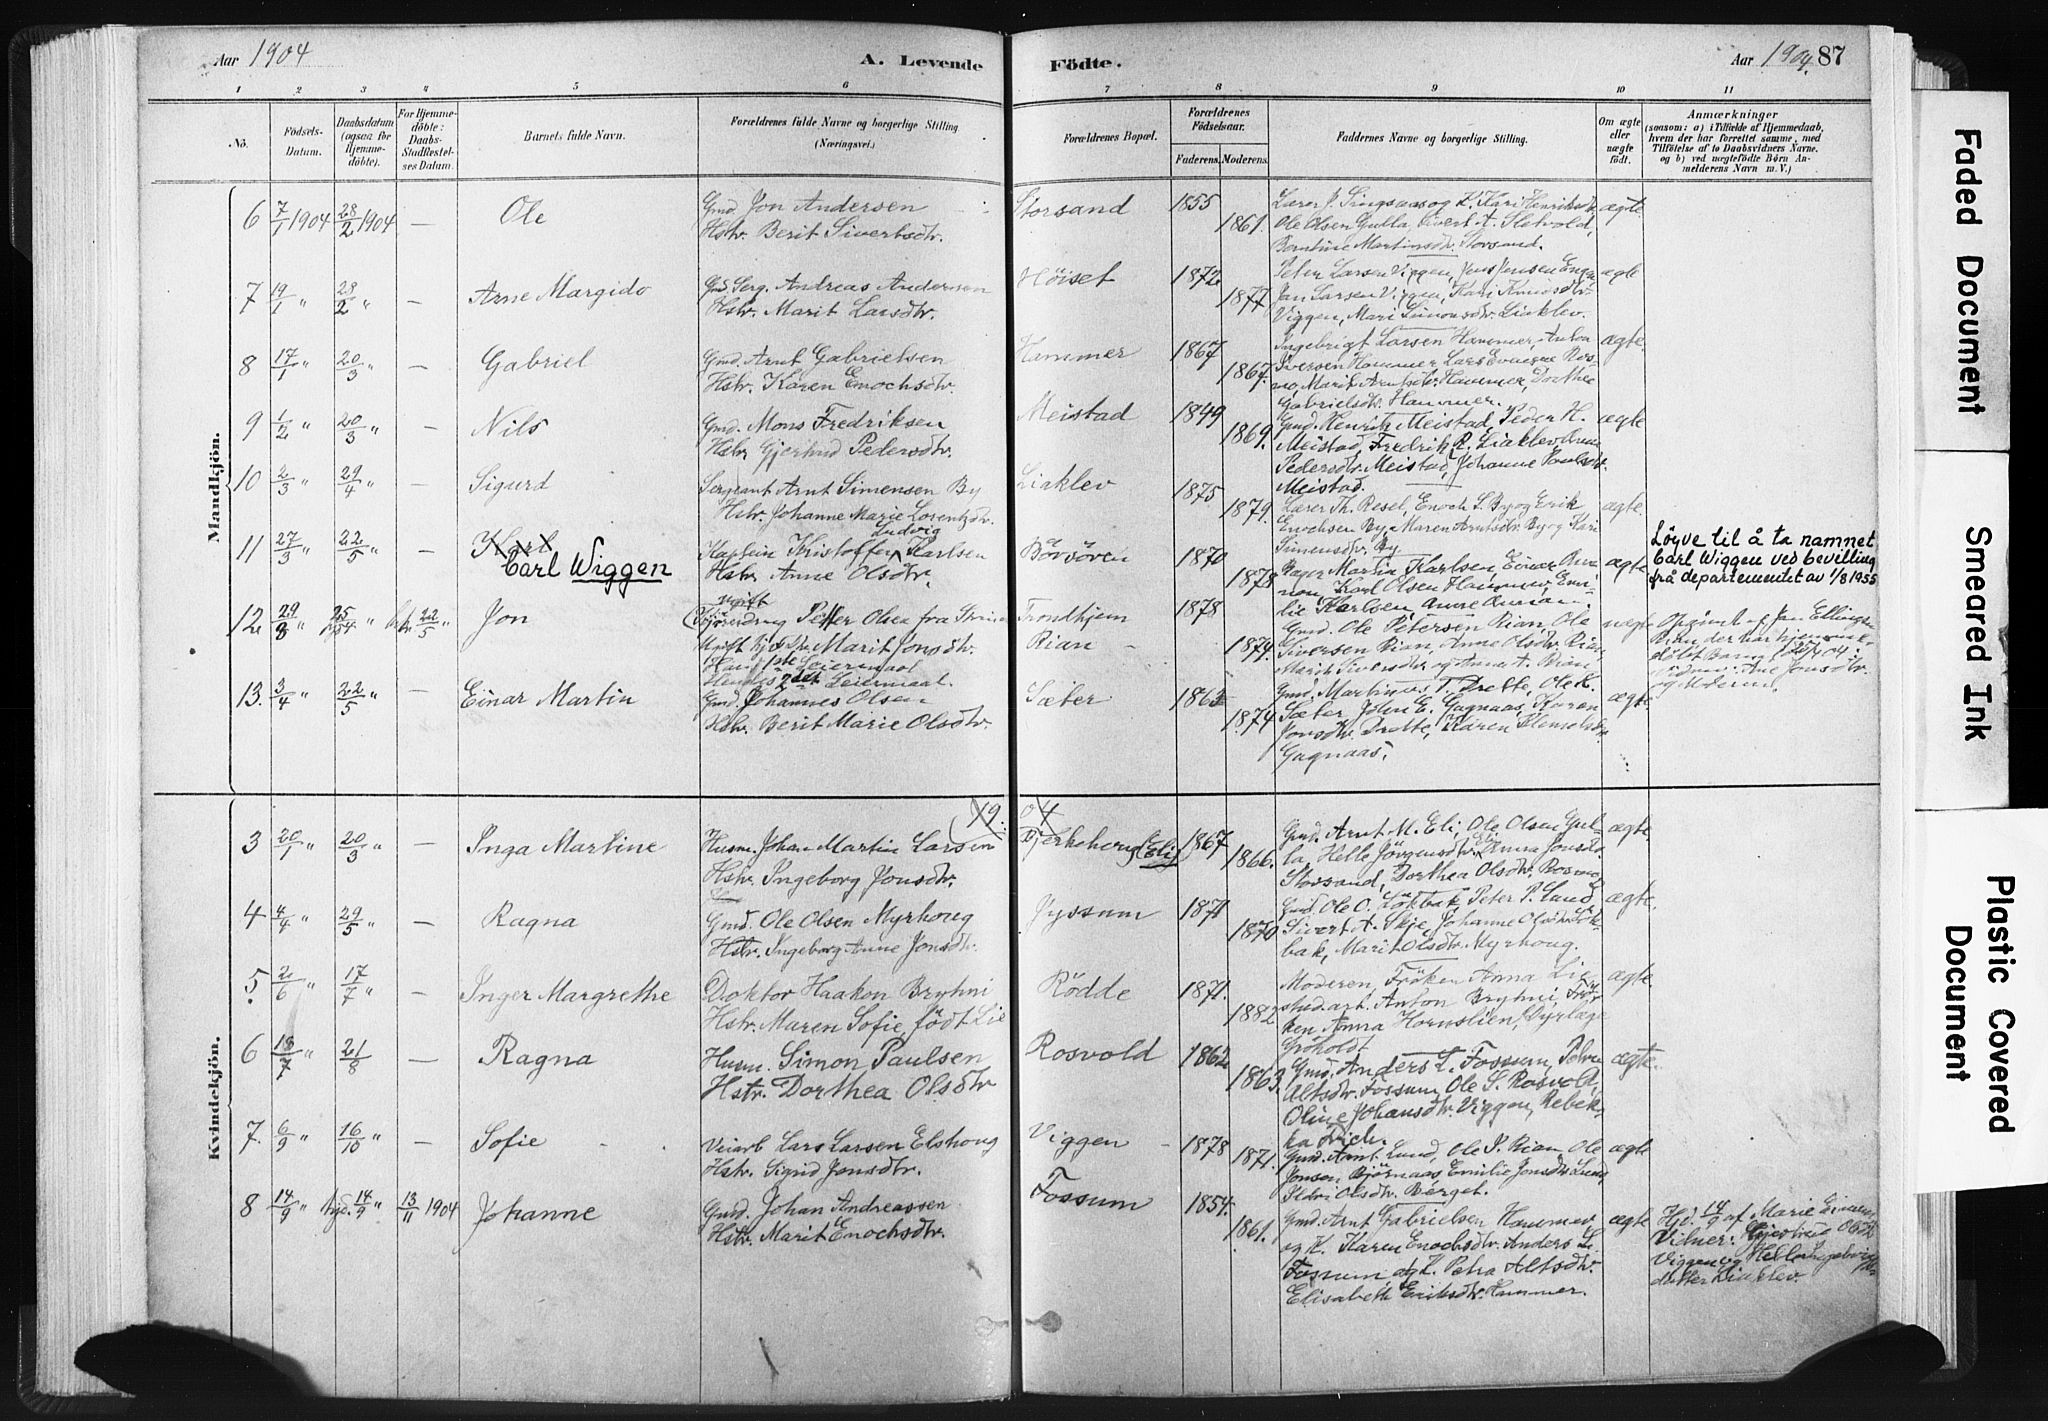 Aar 1904
A. Levende
Födte.
Aar 1904. 87
1 2 3 4 5 6 7 8 9 10 11
No.
Födsels-Datum.
Daabsdatum (ogsaa for Hjemmedöbte).
For Hjemmedöbte: Daabs-Stadfæstelses Datum.
Barnets fulde Navn.
Forældrenes fulde Navne og borgerlige Stilling (Næringsvei.)
Forældrenes Bopæl.
Forældrenes Födselsaar.
Faderens. Moderens.
Faddernes Navne og borgerlige Stilling.
Om ægte eller uægte födt.
Anmærkninger
(saasom: a) i Tilfælde af Hjemmedaab, hvem der har forrettet samme, med Tilföielse af to Daabsvidners Navne, og b) ved uægtefödte Börn Anmelderens Navn m. V.)
Mandkjön.
6 7/1 1904 28/2 1904 — Ole
Gmd. Jon Andersen
Hstr. Berit Sivertsdtr.
Storsand 1855 1861.
Lærer J. Singsaas og K. Kari Henriksdtr.
Ole Olsen Gulla, Sivert A. Sletvold,
Berntine Martinsdtr. Storsand.
ægte
7 19/1 " 28/2 " — Arne Margido
Gmd. Serg. Andreas Andersen
Hstr. Marit Larsdtr.
Höiset 1872 1877
Peter Larsen Viggen, Jens Jensen Engan,
Jan Larsen Viggen, Kari Knudsdtr.
Viggen, Mari Simonsdtr. Liaklev.
ægte
8 17/1 " 20/3 " — Gabriel
Gmd. Arnt Gabrielsen
Hstr. Karen Enochsdtr.
Hammer 1867 1867.
Ingebrigt Larsen Hammer, Anton
Iversen Hammer, Lars
Marit Arntsdtr. Hammer, Dorthea
Gabrielsdtr. Hammer.
ægte.
9 1/2 " 20/3 " — Nils
Gmd. Mons Fredriksen
Hstr. Gjertrud Pedersdtr.
Meistad 1849 1869.
Gmd. Henrik Meistad, Peder H.
Meistad, Fredrik R. Liaklev,
Pedersdtr. Meistad, Johanne Paulsdtr.
Meistad.
ægte
10 2/3 " 29/4 " — Sigurd
Sergeant Arnt Simensen By
Hstr. Johanne Marie Lorentzdtr.
Liaklev 1875 1879.
Lærer Th. Resel, Enoch S. By og Erik
Enochsen By, Maren Arntsdtr. By og Kari
Simensdtr. By
ægte
11 27/3 " 22/5 " — Karl
Carl Wiggen
Kaptein Kristoffer Ludvig Karlsen
Hstr. Anne Olsdtr.
Börsören 1870 1878
Bager Martin Karlsen, Einar
Karl Olsen Hammer, Emi-
lie Karlsen, Anne
ægte
Löyve til å ta namnet
Carl Wiggen ved bevilling
frå departementet av 1/8 1955
12. 29/3 " 25/4 " 22/5 " Jon
ugift
Petter Olsen fra Strinden
Ugift Marit Jonsdtr.
Hans 1ste Leiermaal
Hendes 2det Leiermaal.
Trondhjem
Rian
1878 1874.
Gmd. Ole Petersen Rian, Ole
Siversen Rian, Anna Olsdtr. Rian,
Marit Siversdtr. og Anna A. Rian
uægte
Opgivet af Jon Ellingsen
Rian der har hjemme-
döbt Barnet 25/4 04.
Vidner: Ane Jonsdtr.
og Moderen.
13. 3/4 " 22/5 " — Einar Martin
Gmd. Johannes Olsen
Hstr. Berit Marie Olsdtr.
Sæter 1863 1874.
Gmd. Martinus T. Drette, Ole K.
Sæter, John E. Gagnaas, Karen
Jonsdtr. Drette, Karen Klemetsdtr.
Gagnaas.
ægte.
Kvindekjön.
19 04
3 20/1 " 20/3 " — Inga Martine
Husm. Johan Martin Larsen
Hstr. Ingeborg Jonsdtr.
Bjerkehaug (Eli) 1867 1866.
Gmd. Arnt M. Eli, Ole Olsen Gul-
la, Helle Jörgensdtr. Eli, Anna Jonsdtr.
Storsand, Dorthea Olsdtr. Rosmo
ægte.
4 4/4 " 29/5 " — Ragna
Gmd. Ole Olsen Myrhoug
Hstr. Ingeborg Anne Jonsdtr.
Jyssum 1871 1870
Gmd. Ole O. Lökbak, Peter P. Lund
Sivert A. Skje, Johanne Olsdtr. Lök-
bak, Marit Olsdtr. Myrhoug.
ægte.
5. 2/6 " 17/7 " — Inger Margrethe
Doktor Haakon Bryhni
Hstr. Maren Sofie, födt Lie
Rödde 1871. 1882
Moderen, Fröken Anna Lie
stud. art. Anton Bryhni, Frö-
ken Anna Hornslien, Dyrlæge
Gröholdt
ægte.
6 18/7 " 21/8 — Ragna
Husm. Simon Paulsen
Hstr. Dorthea Olsdtr
Rosvold 1862 1863.
Gmd. Anders L. Fossum, Petra
Altsdtr. Fossum, Ole S. Rosvold,
Oline Johansdtr. Viggen, Rebek-
ka
ægte.
7. 6/9 " 16/10 " — Sofie
Veiarb. Lars Larsen Elshoug
Hstr. Sigrid Jonsdtr.
Viggen 1878 1871.
Gmd. Arnt Lund, Ole P. Rian, Ole
Jonsen Björnaas, Emilie Jonsdtr. Lund,
Ildri Olsdtr. Berget.
ægte
8 14/9 " hjd. 14/9 " 13/11 1904 Johanne
Gmd. Johan Andreassen
Hstr. Marit Enochsdtr.
Fossum 1854. 1861.
Gmd. Arnt Gabrielsen Hammer
og K. Karen Enochsdtr. Anders L.
Fossum og K. Petra Altsdtr.
Elisabeth Eriksdtr. Hammer.
ægte
Hjd. 14/9 af Marie
Vidner: Gjertrud Olsdtr.
Viggen og Helle Ingebrigts-
datter Liaklev.
Faded Document
Smeared Ink
Plastic Covered
Document